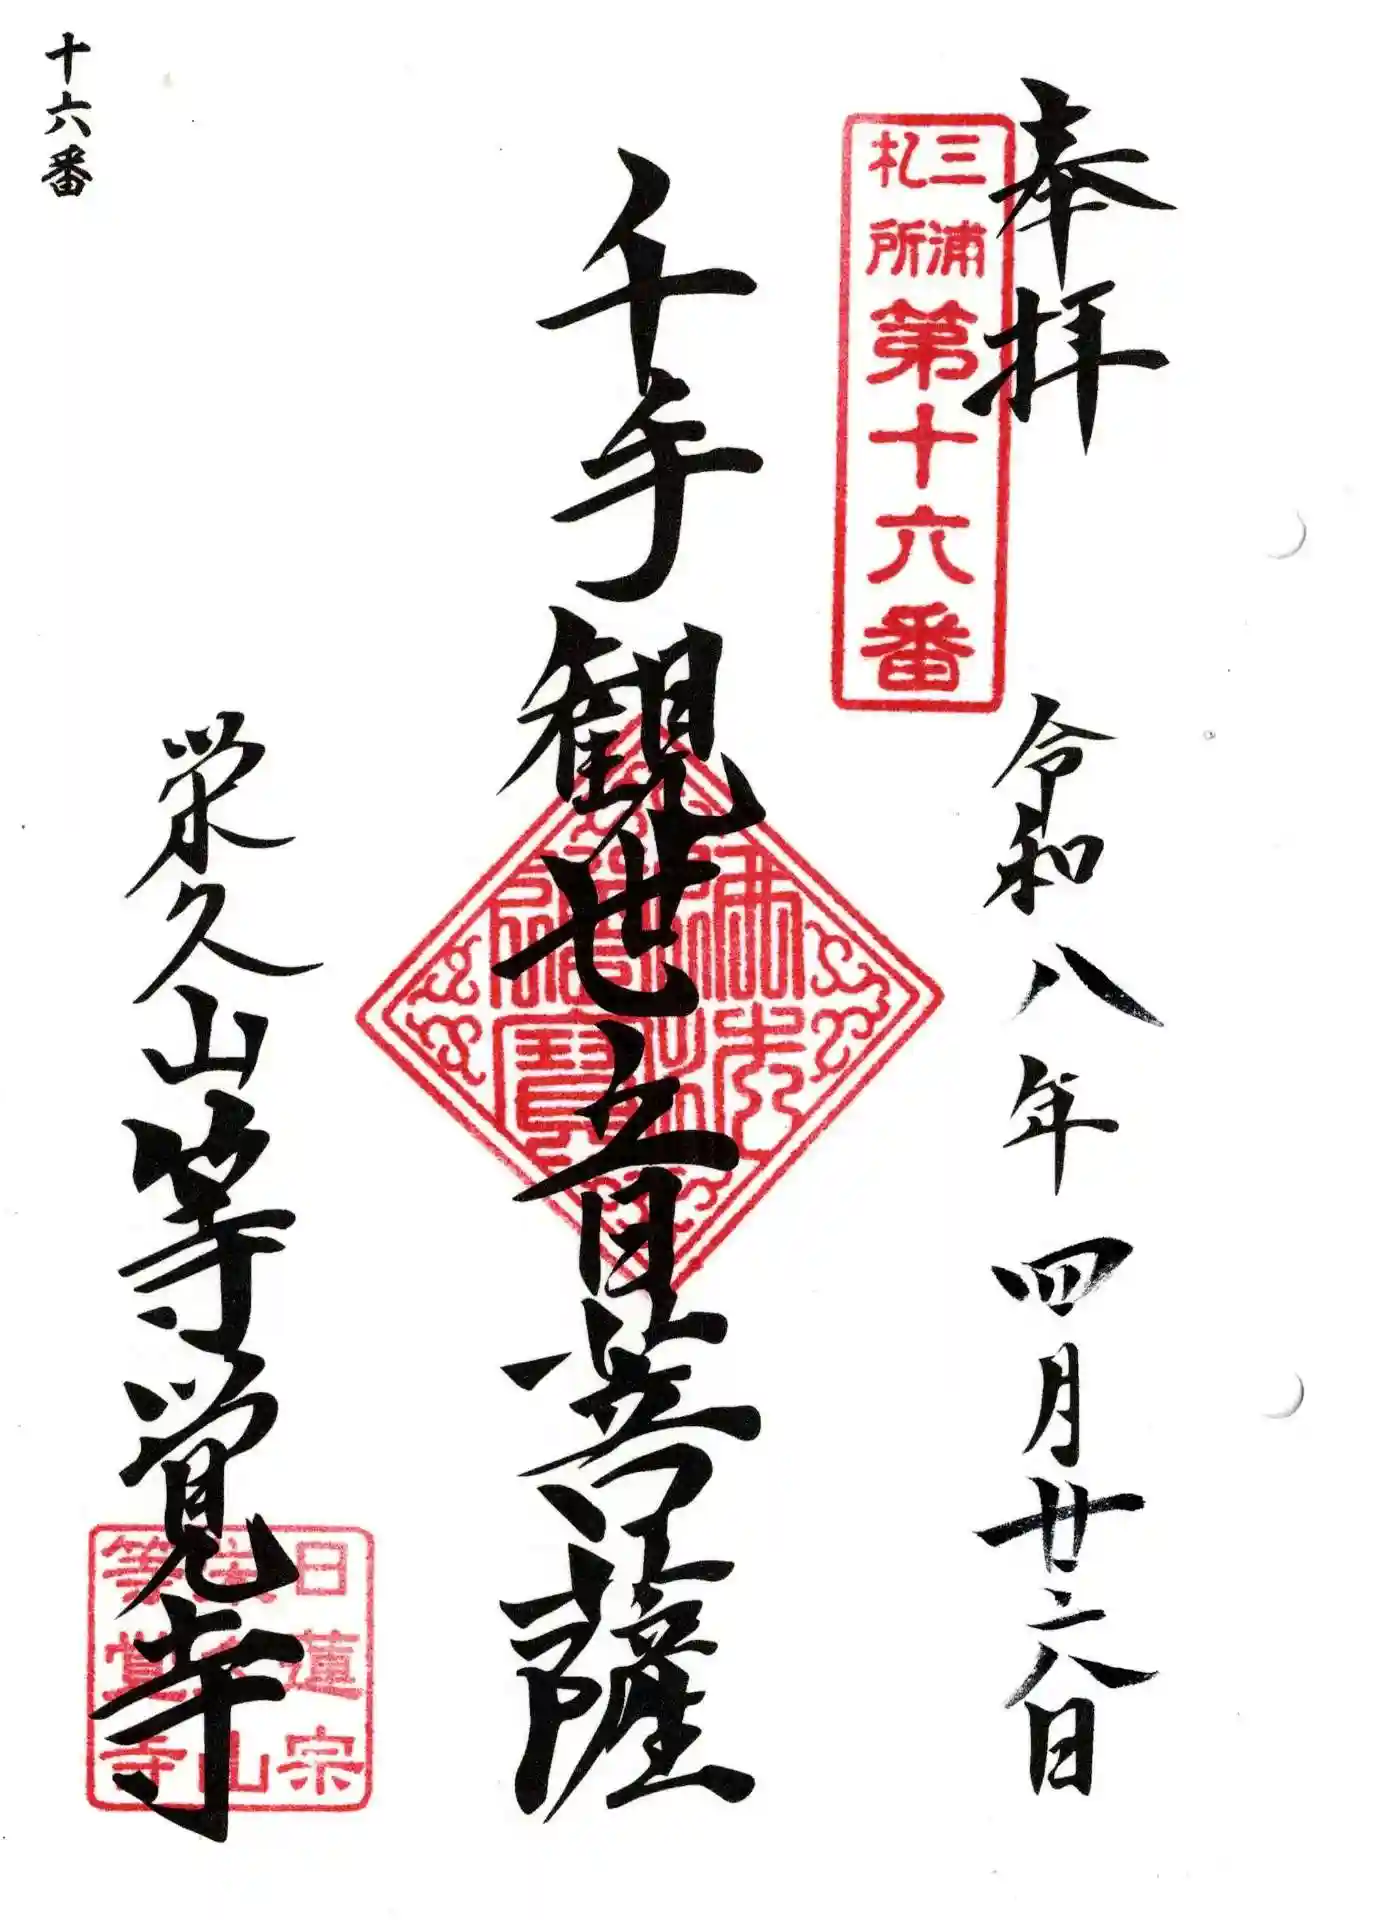 奉拝
令和八年四月廿六日
三浦
札所
第十六番
千手観世音菩薩
佛法
僧寶
栄久山等覚寺
日蓮宗
栄久山
等覚寺
十六番